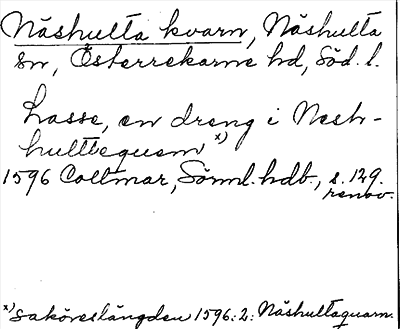 Näshulta kvarn, Näshulta
sn, Österrekarne hd, Söd. l.
Lasse, en dreng i Nesh-
hulttequern x)
1596 Coltmar, Sörml. hdb., s. 129.
renov.
x) Saköreslängden 1596:2: Näshultaquarn.